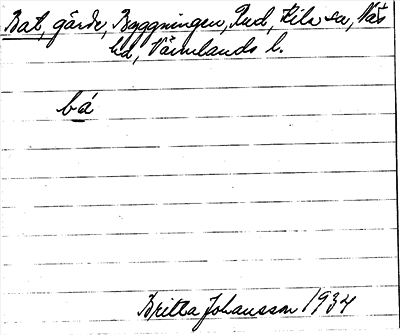 Bat, gärde, Byggningen, Rud, Kila sn, Näs
hd, Värmlands l.
bá
Britta Johansson 1934